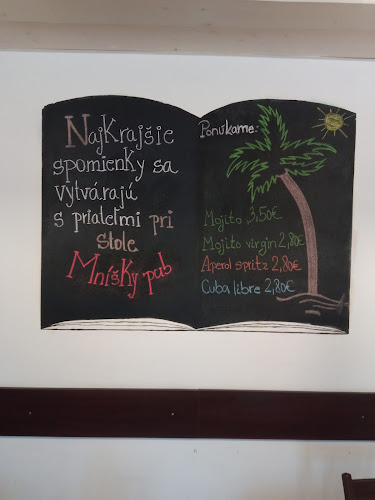 Najkrajšie
spomienky sa
vytvárajú
s priateľmi pri
stole
Mníšky pub
Ponúkame:
Mojito 3,50€
Mojito virgin 2,80€
Aperol spritz 2,80€
Cuba libre 2,80€